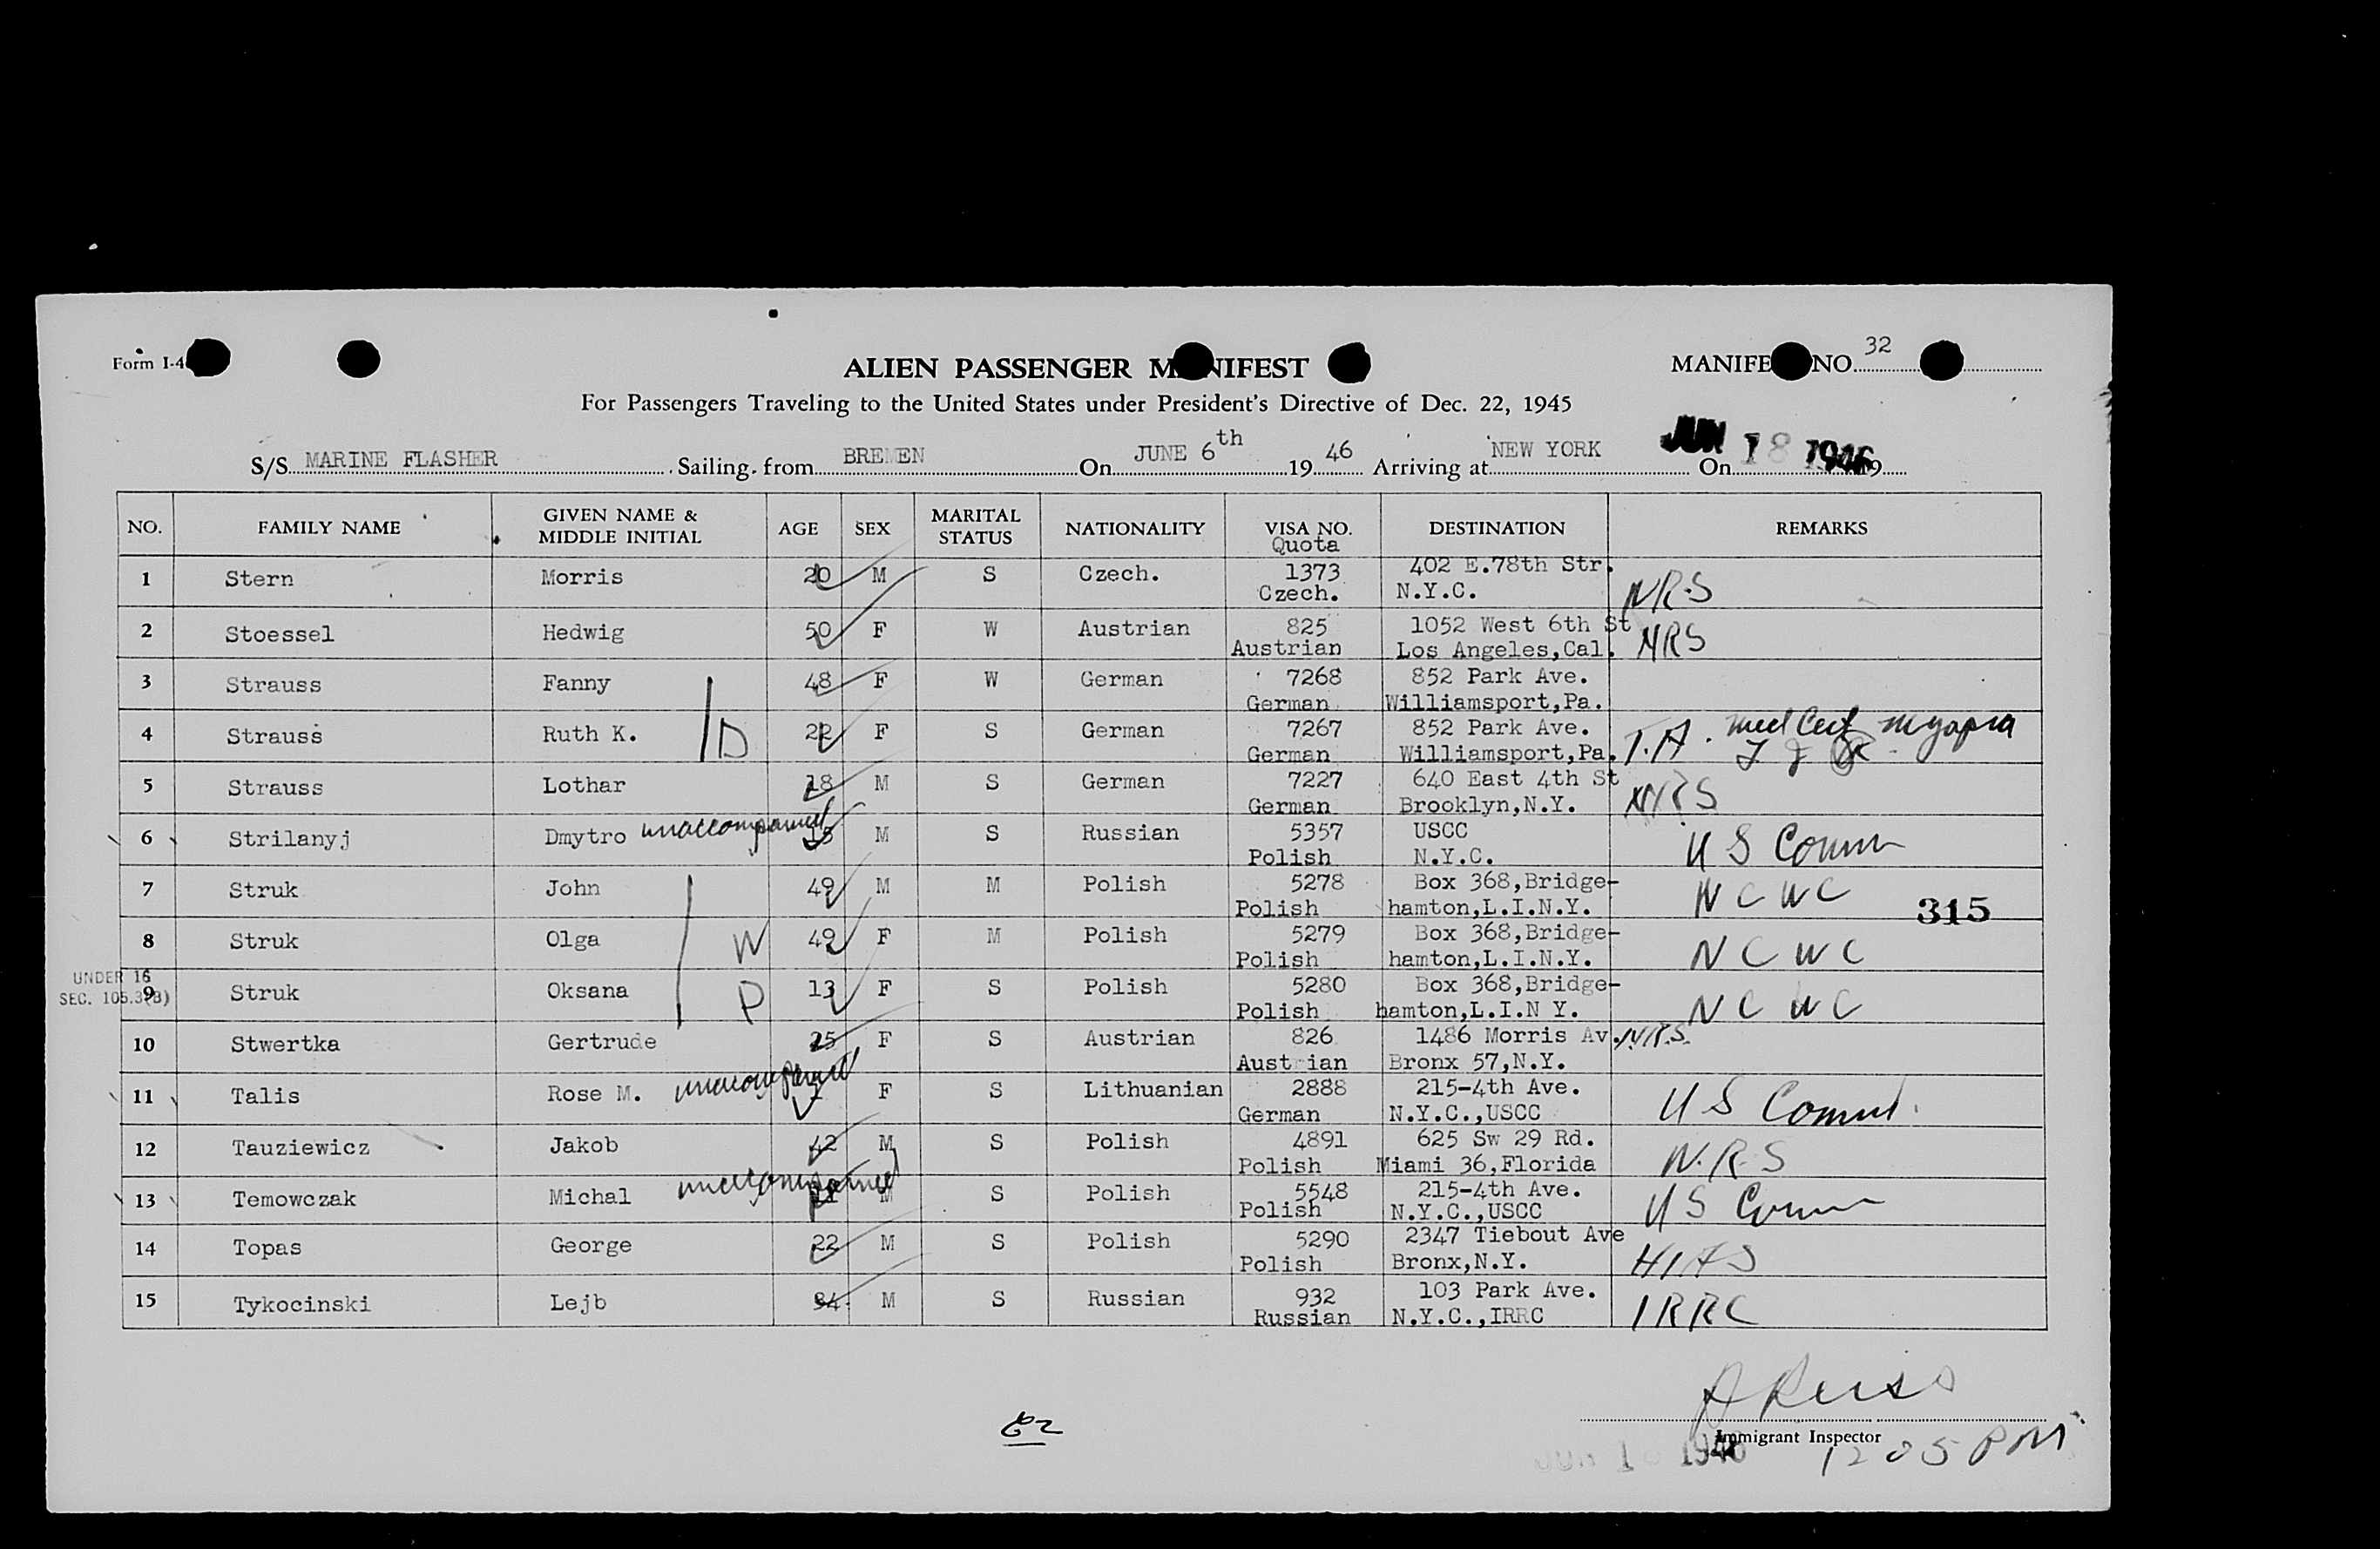 Form I-4
ALIEN PASSENGER M NIFEST
MANIFE NO. 32
For Passengers Traveling to the United States under President's Directive of Dec. 22, 1945
S/S MARINE FLASHER Sailing from BREMEN On JUNE 6th 19 46 Arriving at NEW YORK On JUN 18 1946 19
NO. FAMILY NAME GIVEN NAME & MIDDLE INITIAL AGE SEX MARITAL STATUS NATIONALITY VISA NO. Quota DESTINATION REMARKS
1 Stern Morris 20 M S Czech. 1373 402 E.78th Str. NRS
Czech. N.Y.C.
2 Stoessel Hedwig 50 F W Austrian 825 1052 West 6th St NRS
Austrian Los Angeles,Cal.
3 Strauss Fanny 48 F W German 7268 852 Park Ave.
German Williamsport,Pa.
4 Strauss Ruth K. D 22 F S German 7267 852 Park Ave. T.A. med Cert myopia
German Williamsport,Pa.
5 Strauss Lothar 18 M S German 7227 640 East 4th St NRS
German Brooklyn,N.Y.
6 Strilanyj Dmytro unaccompanied M S Russian 5357 USCC U S Comm
Polish N.Y.C.
7 Struk John 49 M M Polish 5278 Box 368,Bridge- NCWC
Polish hamton,L.I.N.Y. 315
8 Struk Olga W 49 F M Polish 5279 Box 368,Bridge- NCWC
Polish hamton,L.I.N.Y.
UNDER 16
SEC. 105.3(B)
9 Struk Oksana P 13 F S Polish 5280 Box 368,Bridge- NCWC
Polish hamton,L.I.N Y.
10 Stwertka Gertrude 25 F S Austrian 826 1486 Morris Av. N.R.S.
Aust ian Bronx 57,N.Y.
11 Talis Rose M. unaccompanied F S Lithuanian 2888 215-4th Ave. U S Comm.
German N.Y.C.,USCC
12 Tauziewicz Jakob 42 M S Polish 4891 625 Sw 29 Rd. N.R.S
Polish Miami 36,Florida
13 Temowczak Michal unaccompanied M S Polish 5548 215-4th Ave. U S Comm
Polish N.Y.C.,USCC
14 Topas George 22 M S Polish 5290 2347 Tiebout Ave HIAS
Polish Bronx,N.Y.
15 Tykocinski Lejb 34 M S Russian 932 103 Park Ave. IRRC
Russian N.Y.C.,IRRC
Immigrant Inspector
JUN 1 1946 1205 PM